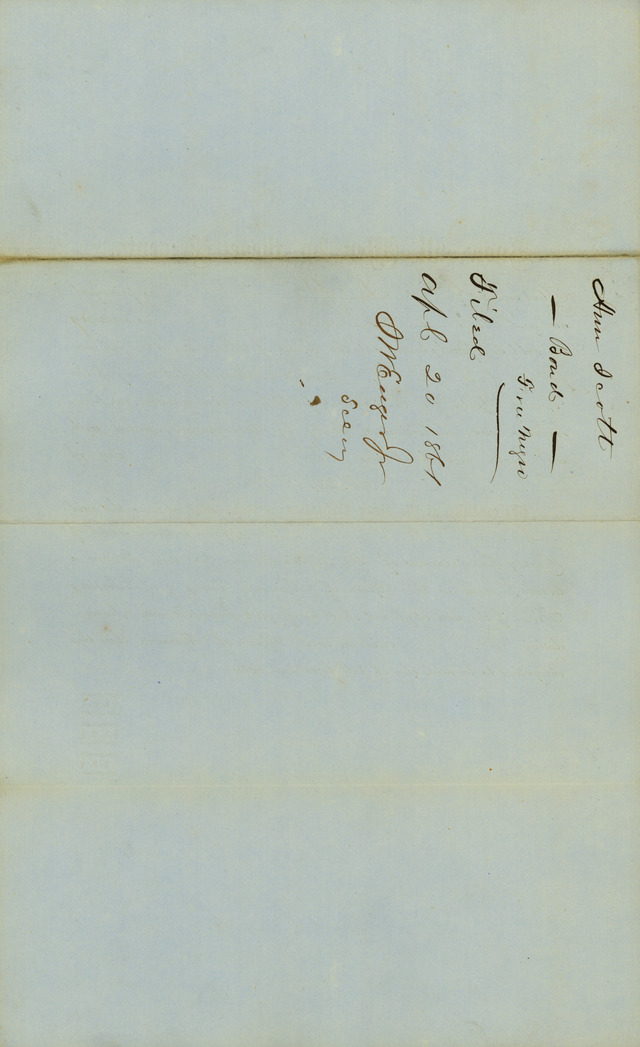 Ann Scott
— Bond —
Free Negro
Filed
Apl 20 1861